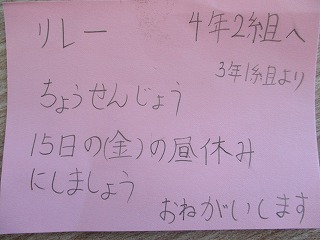 リレー 4年2組へ
3年1組より
ちょうせんじょう
15日の(金)の昼休み
にしましょう
おねがいします